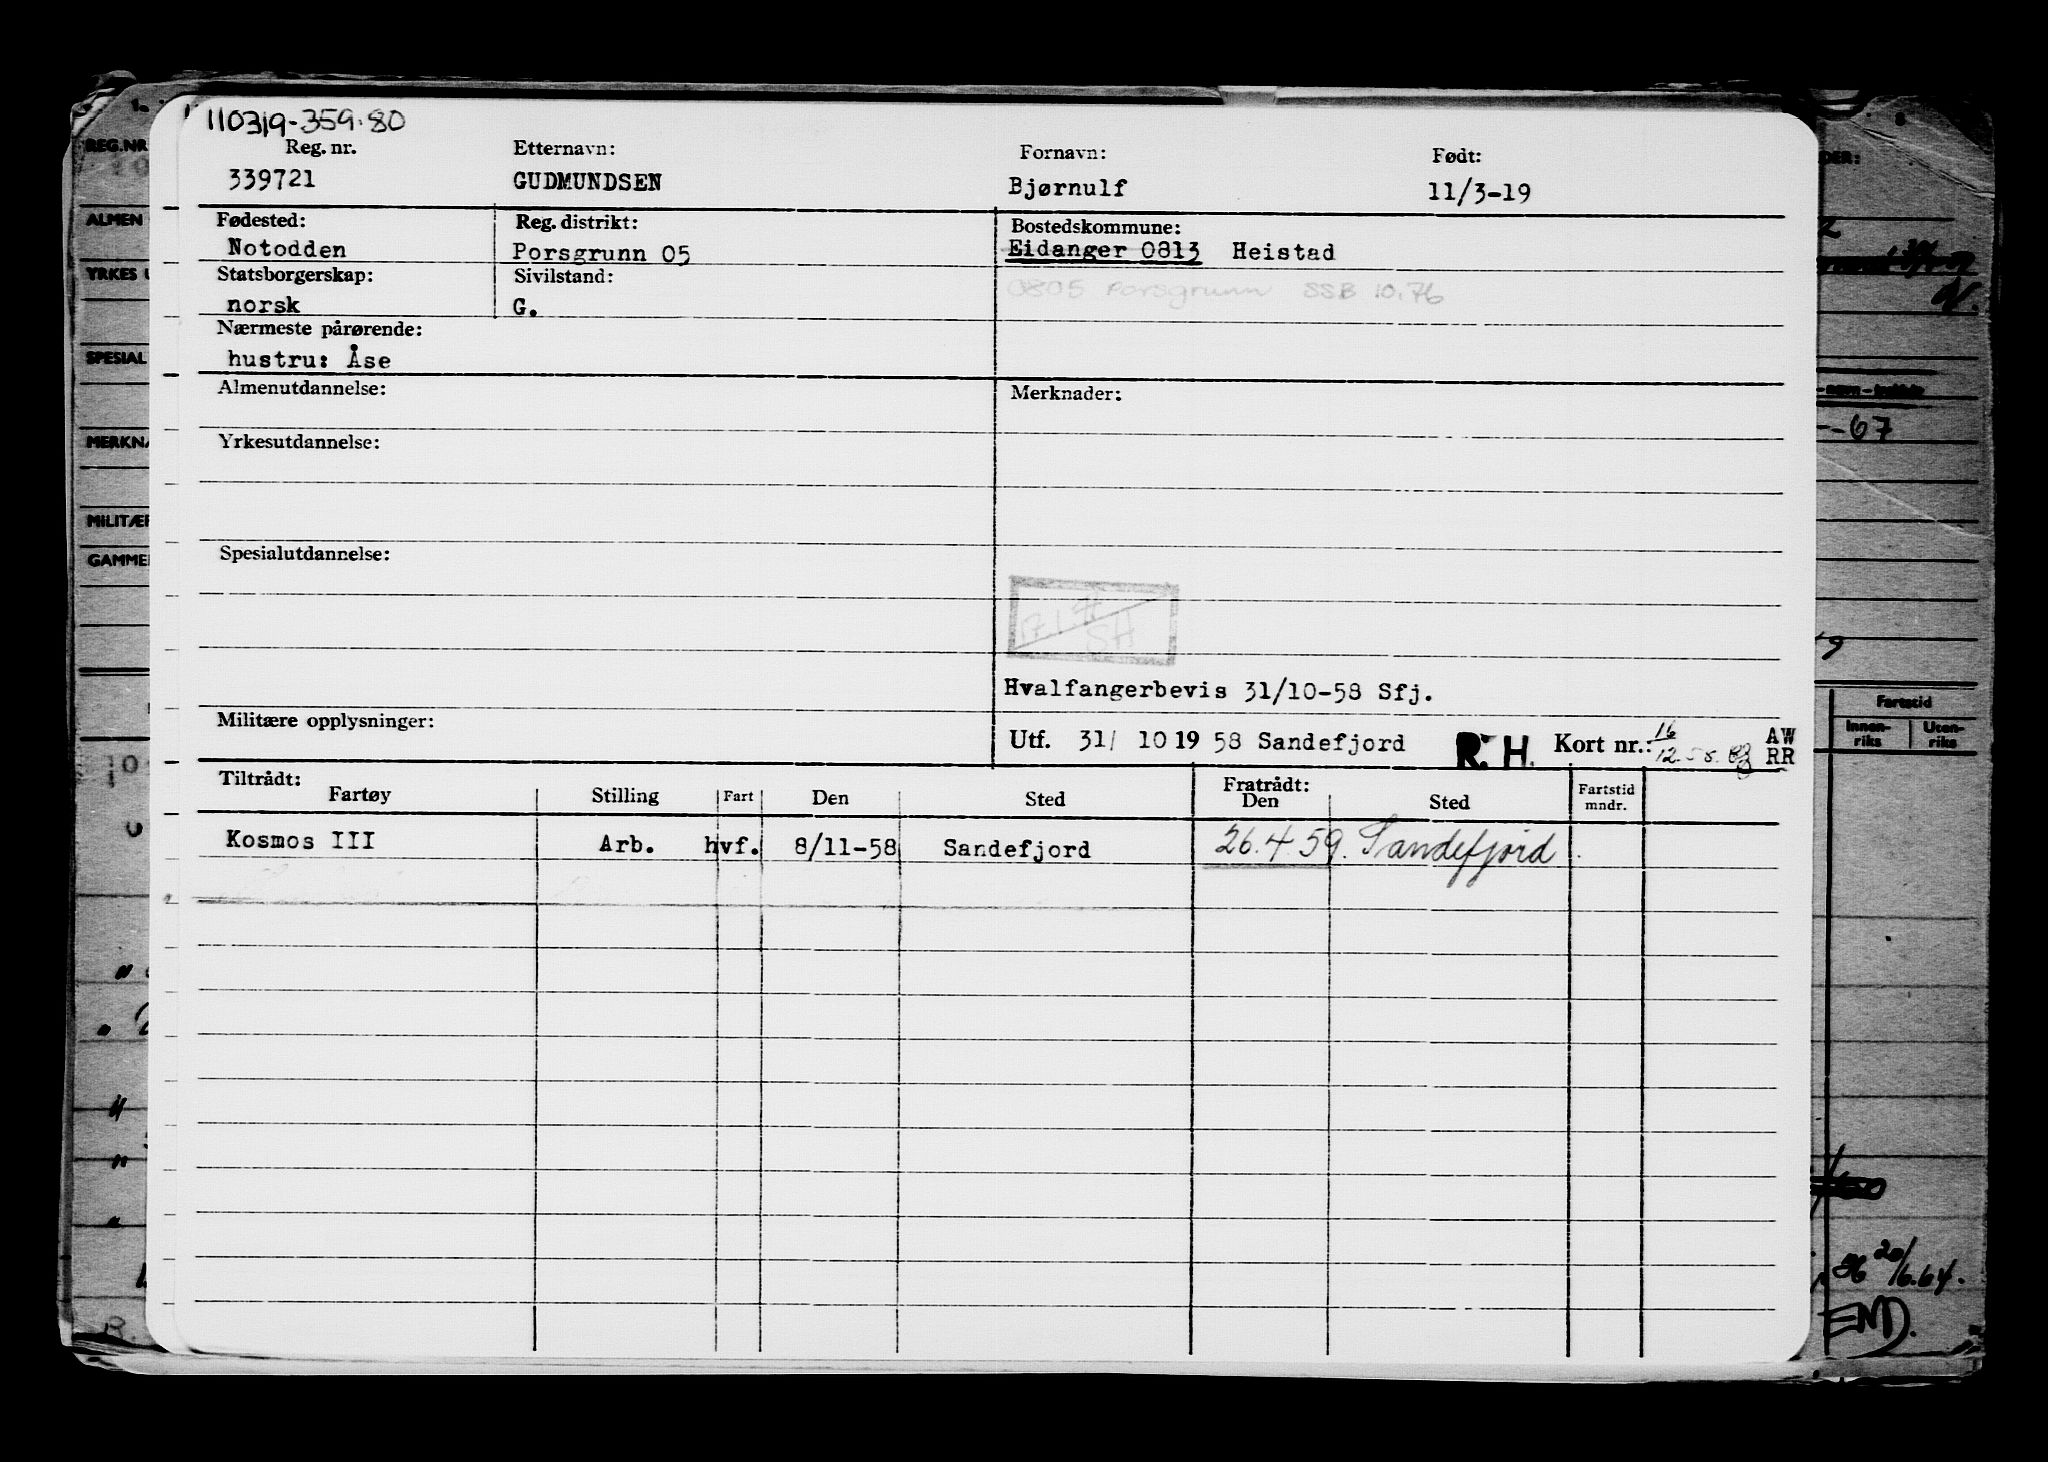 110319-359.80
Reg. nr. Etternavn: Fornavn: Født:
339721 GUDMUNDSEN Bjørnulf 11/3-19
Fødested: Reg. distrikt: Bostedskommune:
Notodden Porsgrunn 05 Eidanger 0813 Heistad
Statsborgerskap: Sivilstand:
norsk G. 0805 Porsgrunn SSB 10.76
Nærmeste pårørende:
hustru: Åse
Almenutdannelse: Merknader:
Yrkesutdannelse:
Spesialutdannelse:
SH
Hvalfangerbevis 31/10-58 Sfj.
Militære opplysninger:
Utf. 31/ 10 19 58 Sandefjord R.H. Kort nr.: 16/12-58. AW RR
Tiltrådt: Fratrådt:
Fartøy Stilling Fart Den Sted Den Sted Fartstid mndr.
Kosmos III Arb. hvf. 8/11-58 Sandefjord 26.4.59. Sandefjord
REG.NR
ALMEN
YRKES U
SPESIAL
MERKNA
MILITÆR
GAMMEL
DER:
-67
Fartstid
Innen-riks Uten-riks
20/6.64.
END.